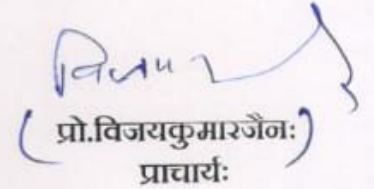 प्रो.विजयकुमारजैनः
प्राचार्यः